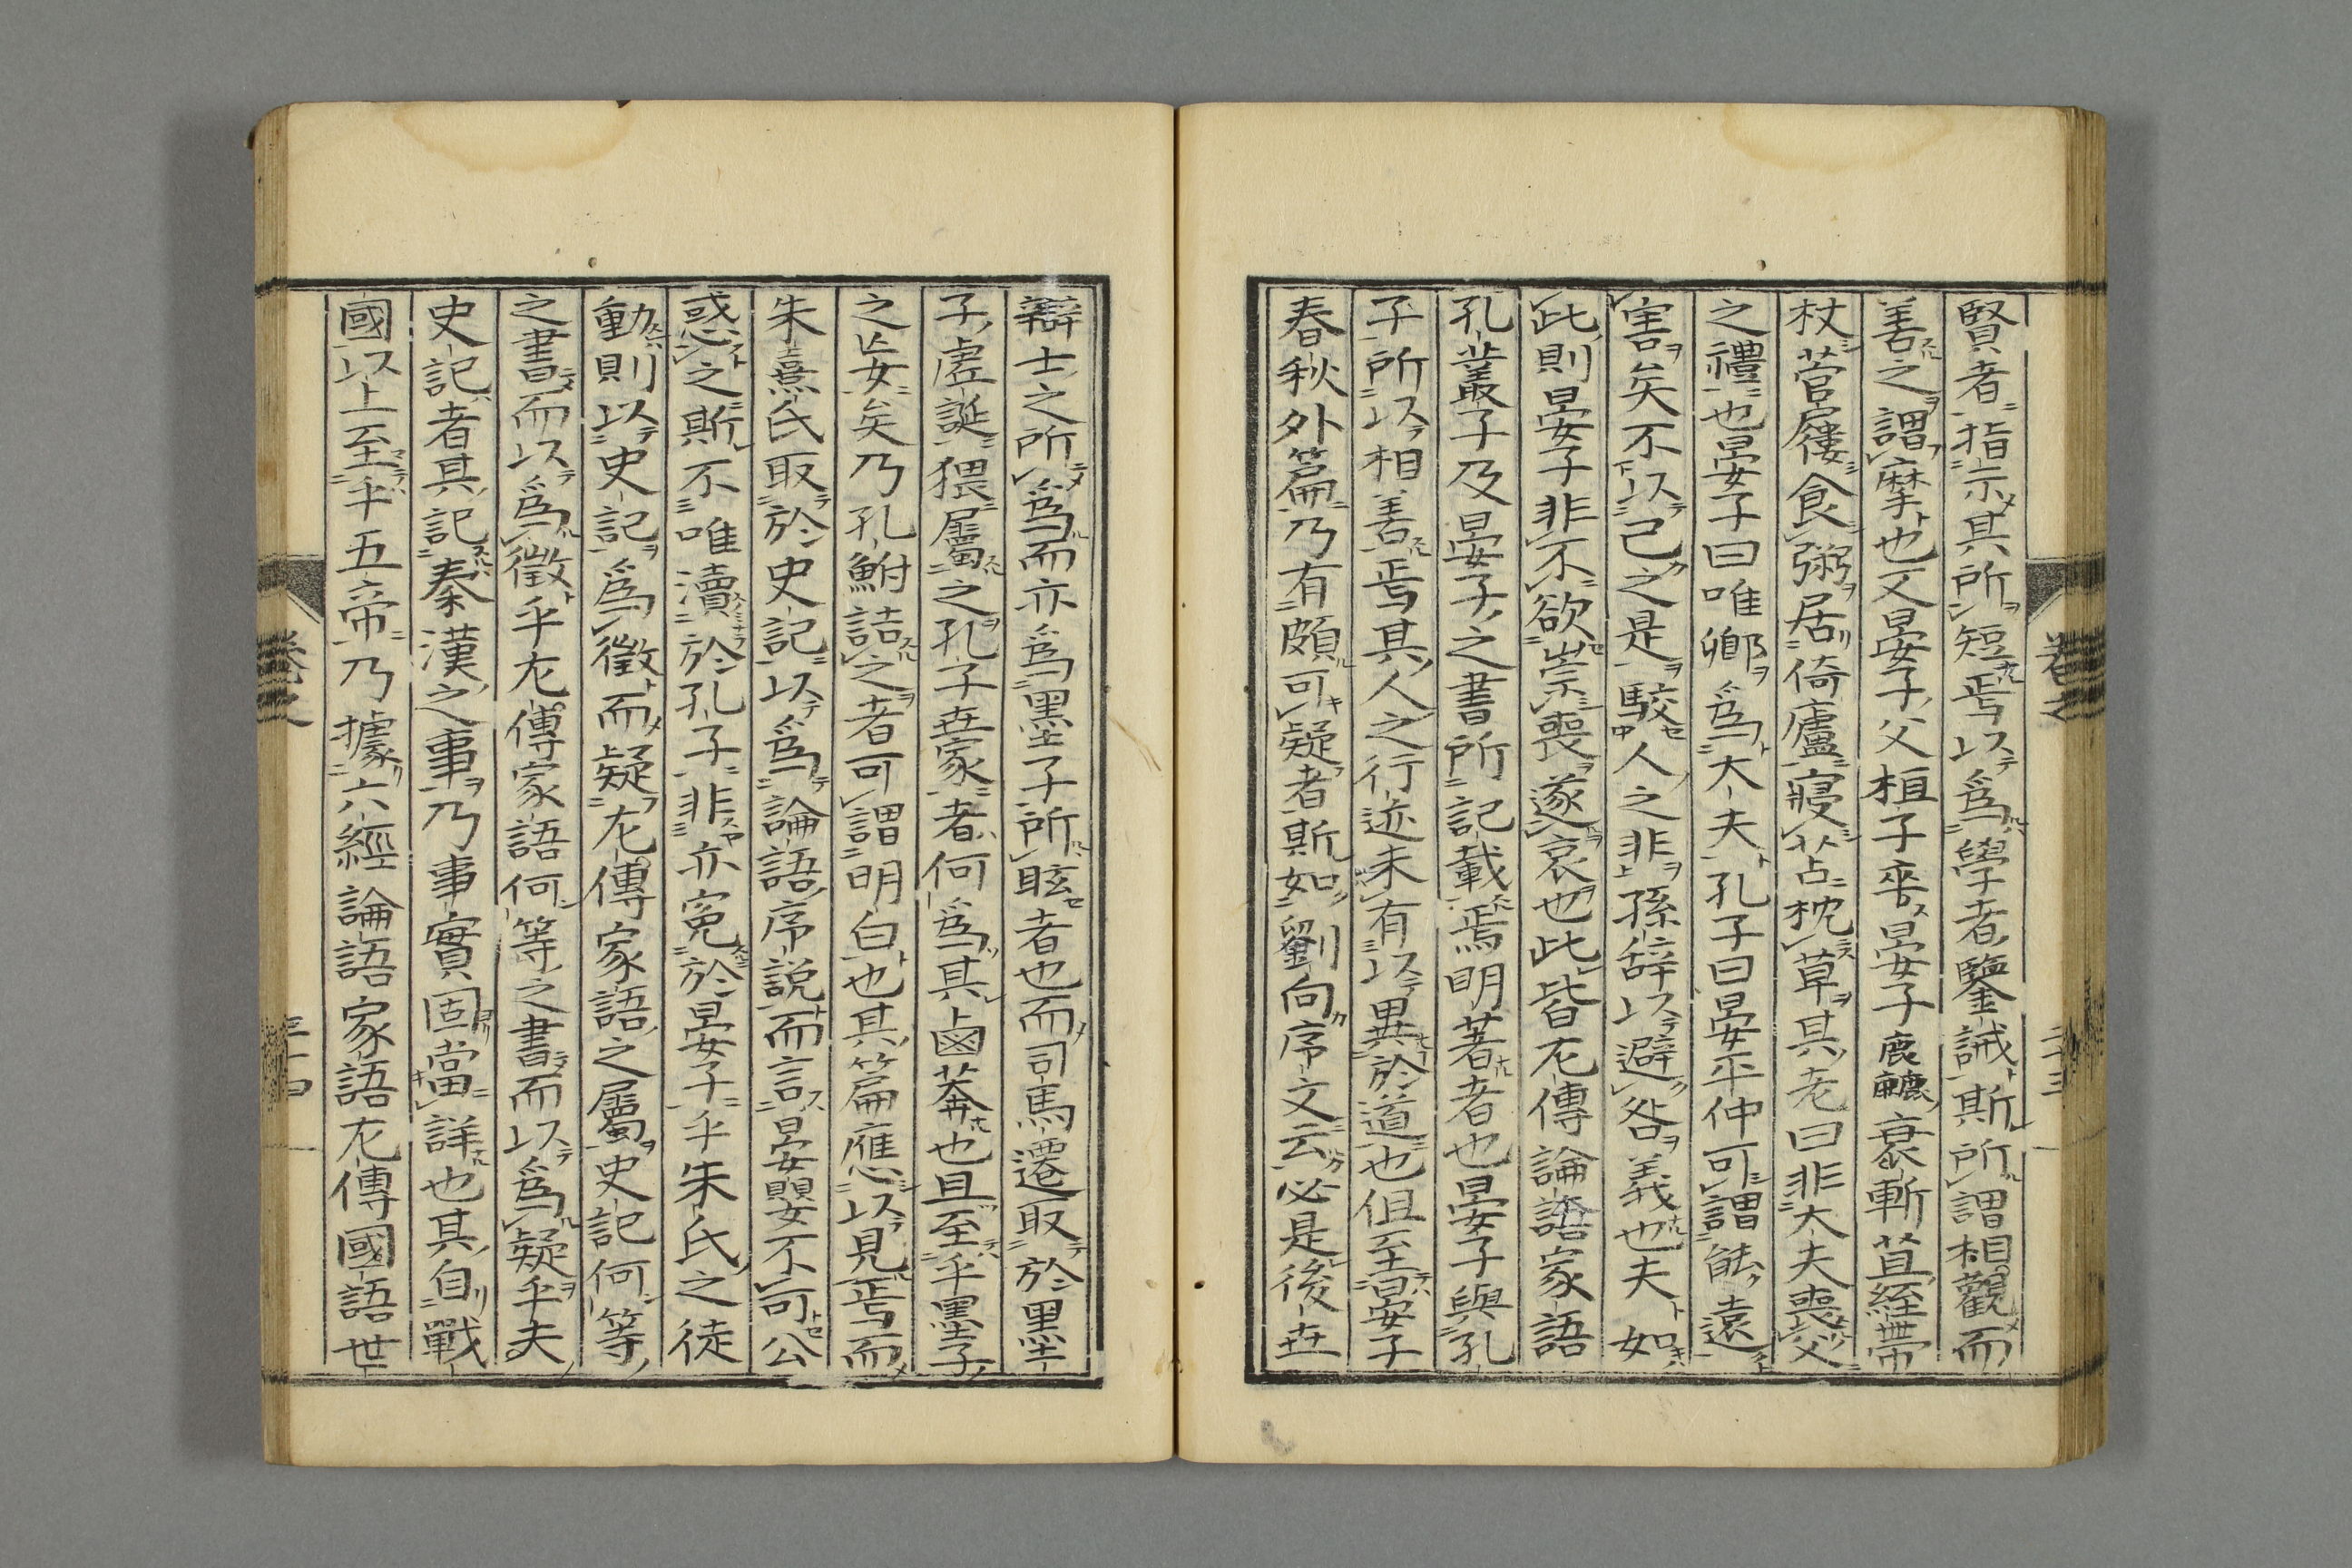 賢者指示其所短焉以爲學者鑒誡斯所謂相觀而
善之謂摩也又晏子父桓子卒晏子麤縗衰斬苴絰帶
杖菅屨食粥居倚廬寢苫枕草其老曰非大夫喪父
之禮也晏子曰唯卿爲大夫孔子曰晏平仲可謂能遠
害矣不以己之是駮人之非孫辞以避咎義也夫如
此則晏子非不欲崇喪遂哀也此皆左傳論語家語
孔叢子及晏子之書所記載焉明著者也晏子與孔
子所以相善焉其人之行迹未有以異於道也但至晏子
春秋外篇乃有頗可疑者斯如劉向序文云必是後世
辯士之所爲而亦爲墨子所眩者也而司馬遷取於墨
子虛誕猥屬之孔子世家者何爲其鹵莽也且至乎墨子
之妄矣乃孔鮒詰之者可謂明白也其篇應以見焉而
朱熹氏取於史記以爲論語序說而言晏嬰不可公
惑之斯不唯瀆於孔子非亦寃於晏子乎朱氏之徒
動則以史記爲徵而疑左傳家語之屬史記何等
之書而以爲徵乎左傳家語何等之書而以爲疑乎夫
史記者其記秦漢之事乃事實固當詳也其自戰
國以上至乎五帝乃據六經論語家語左傳國語世